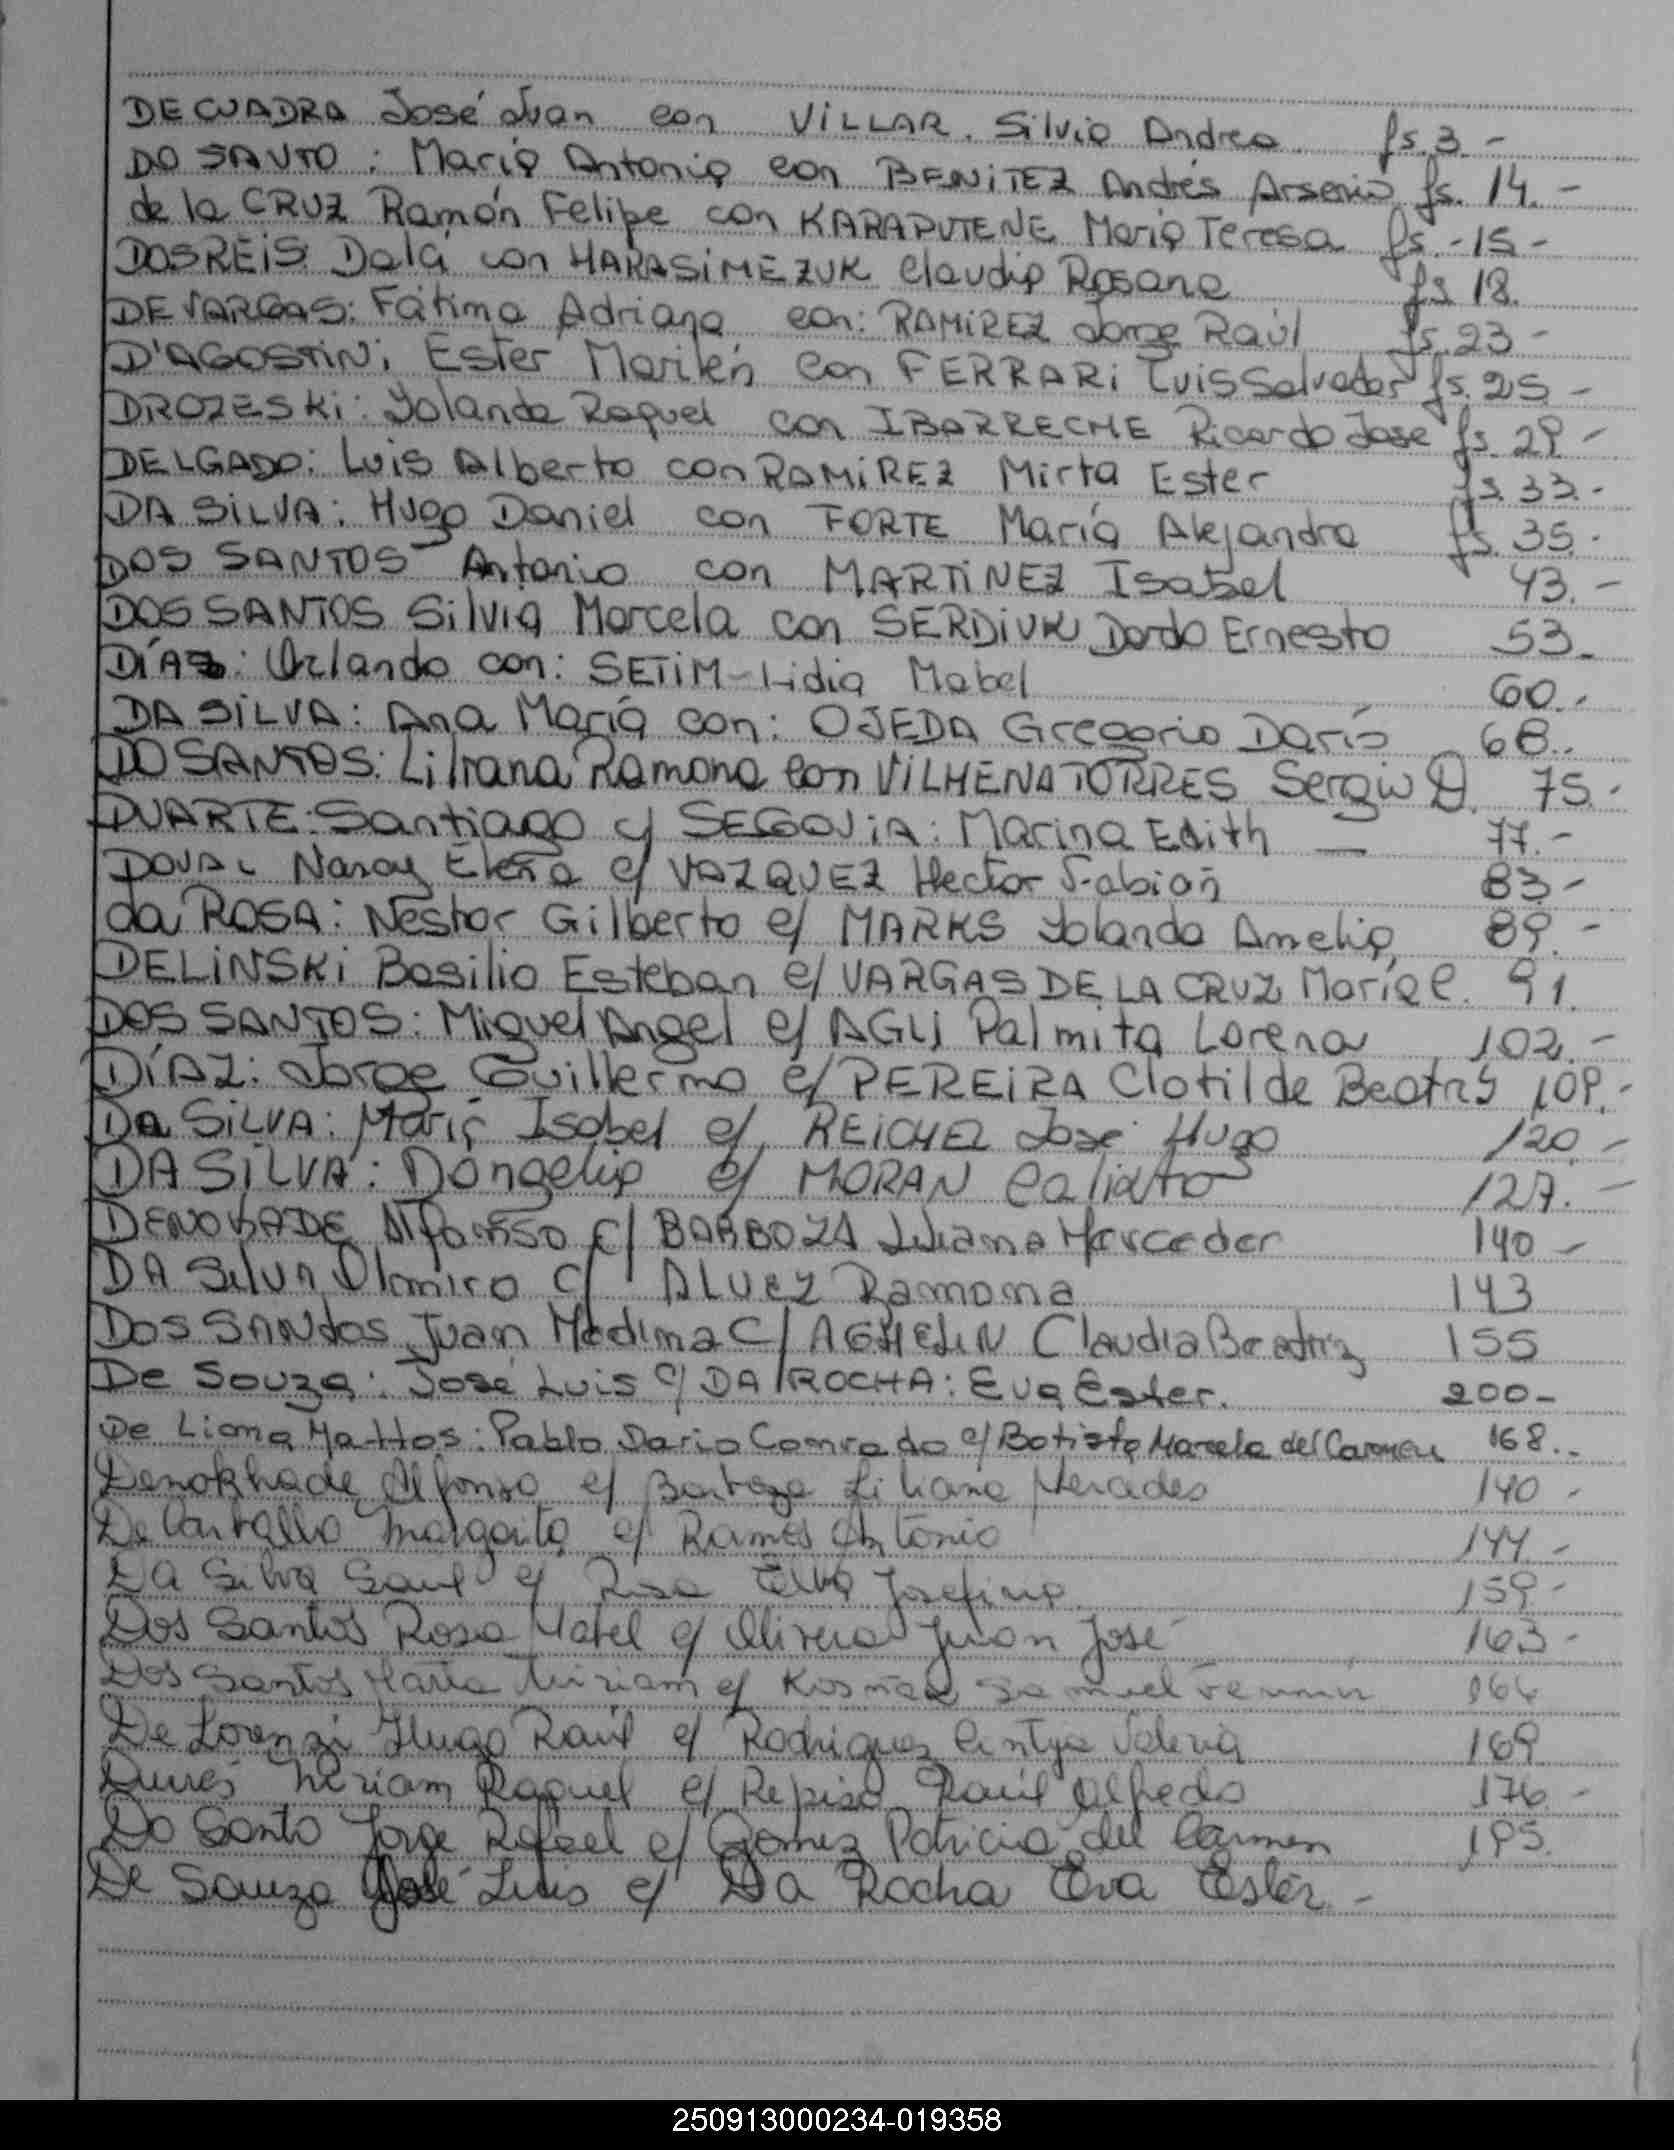 DECUADRA José Juan con VILLAR. Silvia Andrea fs. 3.-
DO SAUTO: María Antonia con BENITEZ Andrés Arsenio fs. 14.-
de la CRUZ Ramón Felipe con KARAPUTENE María Teresa fs. -15-
DOSREIS Dalá con HARASIMEZUK Claudia Rosana fs 18.
DEVARGAS: Fátima Adriana con: RAMIREZ Jorge Raúl fs. 23-
D'AGOSTINi Ester Marilén con FERRARi Luis Salvador fs. 25-
DROZESKi: Yolanda Raquel con IBARRECHE Ricardo José fs. 29-
DELGADO: Luis Alberto con RAMIREZ Mirta Ester fs. 33.-
DA SILVA: Hugo Daniel con FORTE María Alejandra fs. 35.-
DOS SANTOS Antonio con MARTINEZ Isabel 43.-
DOS SANTOS Silvia Marcela con SERDIUK Dardo Ernesto 53.
DÍAZ: Orlando con: SETIM-Lidia Mabel 60.-
DA SILVA: Ana María con: OJEDA Gregorio Darío 68..
DO SANTOS: Liliana Ramona con VILHENA TORRES Sergio D. 75.-
DUARTE: Santiago c/ SEGOVIA: Marina Edith — 77.-
DOVAL Nancy Elena c/ VAZQUEZ Hector Fabián 83-
da ROSA: Nestor Gilberto c/ MARKS Yolanda Amelia 89.-
DELINSKi Basilio Esteban c/ VARGAS DE LA CRUZ María C. 91.
DOS SANTOS: Miguel Angel c/ AGLI Palmita Lorena 102.-
DÍAZ: Jorge Guillermo c/ PEREIRA Clotilde Beatriz 109.-
Da SILVA: María Isabel c/ REICHEL José Hugo 120.-
DA SILVA: Dongelia c/ MORAN Calixto 127.-
DENOKADE Alfonso c/ BARBOZA Liliana Mercedes 140-
DA Silva Olmiro c/ ALVEZ Ramona 143
Dos SANTOS Juan Medima C/ AGHELIN Claudia Beatriz 155
De Souza: José Luis c/ DA ROCHA: Eva Ester. 200-
De Liama Mattos: Pablo Dario Conrado c/ Batista Marcela del Carmen 168..
Denokhade Alfonso c/ Barboza Liliana Mercedes 140-
De Carvallo Margarita c/ Ramos Antonio 144.-
Da Silva Saul c/ Rosa Elba Josefina 159-
Dos Santos Rosa Mabel c/ Olivera Juan José 163-
Dos Santos María Miriam c/ Fermín
De Lorenzi Hugo Raúl c/ Rodriguez Cintya Valeria 169
Miriam Raquel c/ Repiso Raúl Alfredo 176-
Do Santo Jorge Rafael c/ Gomez Patricia del Carmen 195.
De Souza José Luis c/ Da Rocha Eva Ester -
250913000234-019358